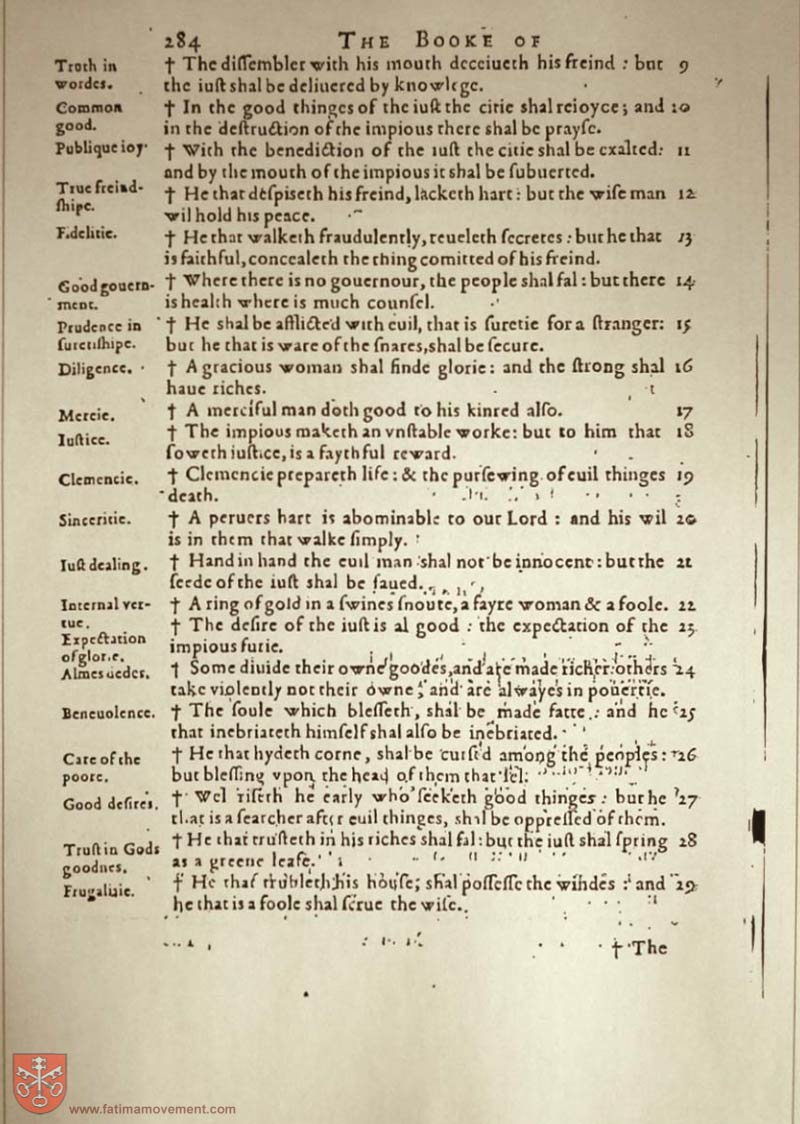 284 THE BOOKE OF
Troth in
wordes.
† The diſſembler with his mouth deceiueth his freind : but 9
the iuſt shal be deliuered by knowlege.
Common
good.
† In the good thinges of the iuſt the citie shal reioyce; and 10
in the deſtruction of the impious there shal be prayſe.
Publique ioy.
† With the benediction of the iuſt the citie shal be exalted: 11
and by the mouth of the impious it shal be ſubuerted.
True freind-
ſhipe.
† He that deſpiseth his freind, lacketh hart : but the wiſe man 12
wil hold his peace.
Fidelitie.
† He that walketh fraudulently, reueleth ſecretes : but he that 13
is faithful, concealeth the thing comitted of his freind.
Good gouern-
ment.
† Where there is no gouernour, the people shal fal : but there 14
is health where is much counſel.
Prudence in
ſuretiſhipe.
† He shal be afflicted with euil, that is ſuretie for a ſtranger: 15
but he that is ware of the ſnares, shal be ſecure.
Diligence.
† A gracious woman shal finde glorie : and the ſtrong shal 16
haue riches.
Mercie.
† A merciful man doth good to his kinred alſo. 17
Iuſtice.
† The impious maketh an vnſtable worke: but to him that 18
ſoweth iuſtice, is a faythful reward.
Clemencie.
† Clemencie prepareth life : & the purſewing of euil thinges 19
death.
Sinceritie.
† A peruers hart is abominable to our Lord : and his wil 20
is in them that walke ſimply.
Iuſt dealing.
† Hand in hand the euil man shal not be innocent : but the 21
ſeede of the iuſt shal be ſaued.
Internal ver-
tue.
† A ring of gold in a ſwines ſnoute, a fayre woman & a foole. 22
Expectation
of glorie.
† The deſire of the iuſt is al good : the expectation of the 23
impious furie.
Almes deedes.
† Some diuide their owne goodes, and are made richer: others 24
take violently not their owne, and are alwayes in pouertie.
Beneuolence.
† The ſoule which bleſſeth, shal be made fatte : and he 25
that inebriateth himſelf shal alſo be inebriated.
Care of the
poore.
† He that hydeth corne, shal be curſed among the peoples : 26
but bleſſing vpon the head of them that ſel.
Good deſires.
† Wel riſeth he early who ſeeketh good thinges : but he 27
that is a ſearcher after euil thinges, shal be oppreſſed of them.
Truſt in Gods
goodnes.
† He that truſteth in his riches shal fal : but the iuſt shal ſpring 28
as a greene leafe.
Frugalitie.
† He that trubleth his houſe, shal poſſeſſe the windes : and 29
he that is a foole shal ſerue the wiſe.
† The
www.fatimamovement.com